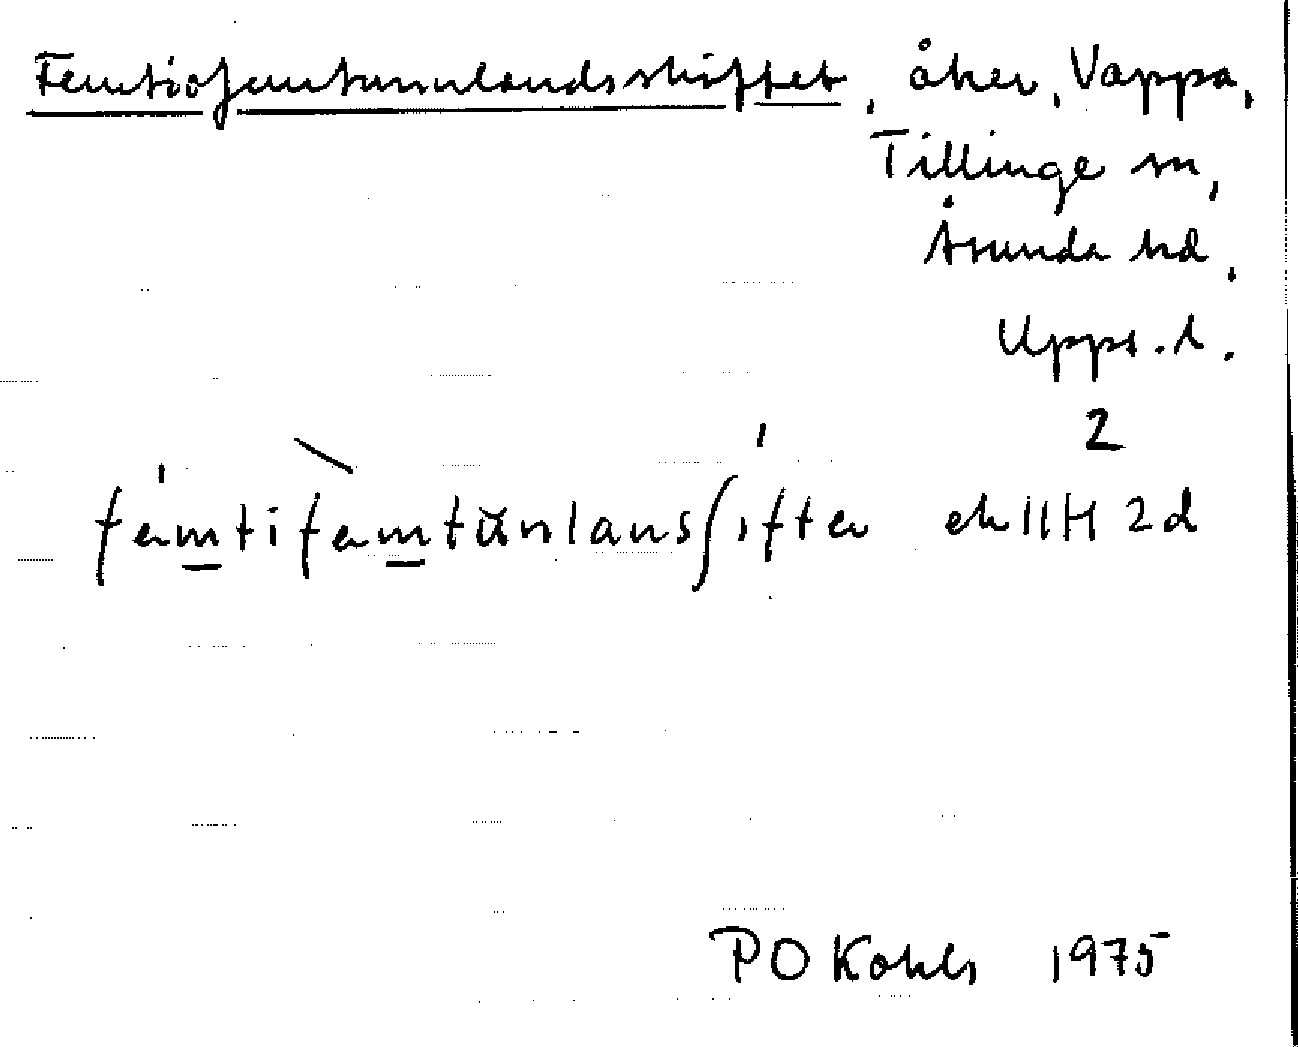 Femtiofemtunnlandsskiftet, åker, Vappa,
Tillinge sn,
Åsunda hd,
Upps. l.
2
fämtifämtŭnlansʃifte ek II H 2d
P O Kohls 1975